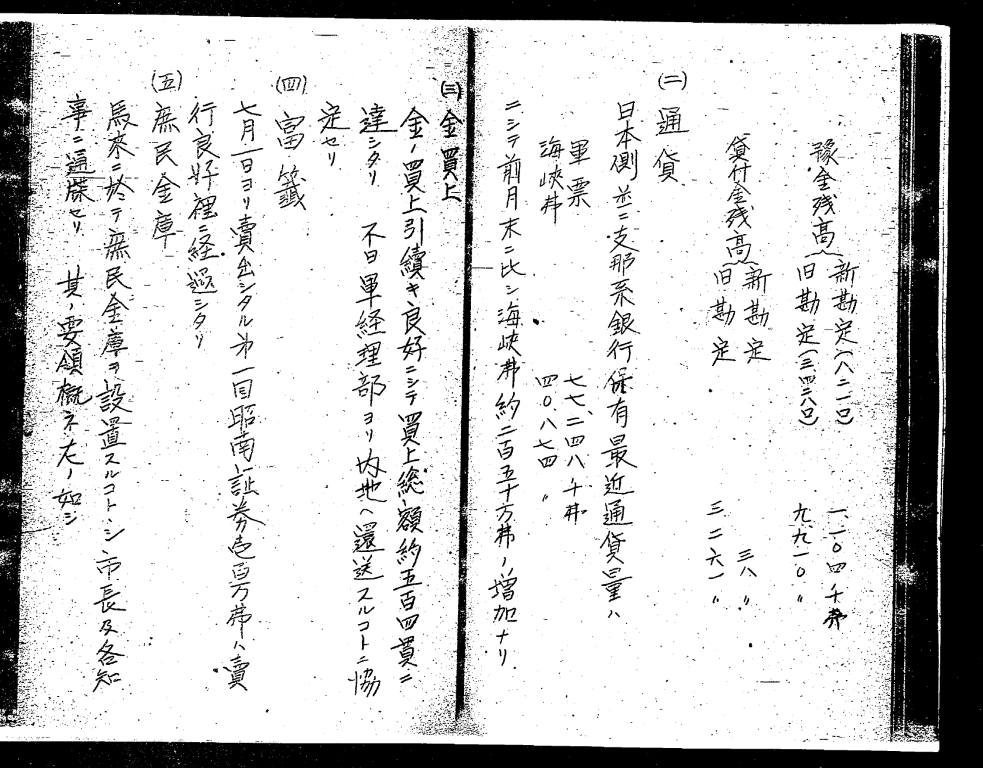 豫金残高
新勘定(八二一口) 一一、〇四一千弗
旧勘定(三、四二八口) 九、九一〇〃
貸付金残高
新勘定 三八〃
旧勘定 三二六一〃
(二) 通貨
日本側並ニ支那系銀行保有最近通貨量ハ
軍票 七七、二四八千弗
海峡弗 四〇、八七四〃
ニシテ前月末ニ比シ海峡弗約二百五十万弗ノ増加ナリ
(三) 金買上
金ノ買上引續キ良好ニシテ買上総額約五百四貫ニ
達シタリ 不日軍経理部ヨリ内地ヘ還送スルコトニ協
定セリ
(四) 富籤
七月一日ヨリ賣出シタル第一回昭南証券壱百万弗ハ賣
行良好裡ニ経過シタリ
(五) 庶民金庫
馬来ニ於テ庶民金庫ヲ設置スルコトトシ市長及各知
事ニ通牒セリ 其ノ要領概ネ左ノ如シ